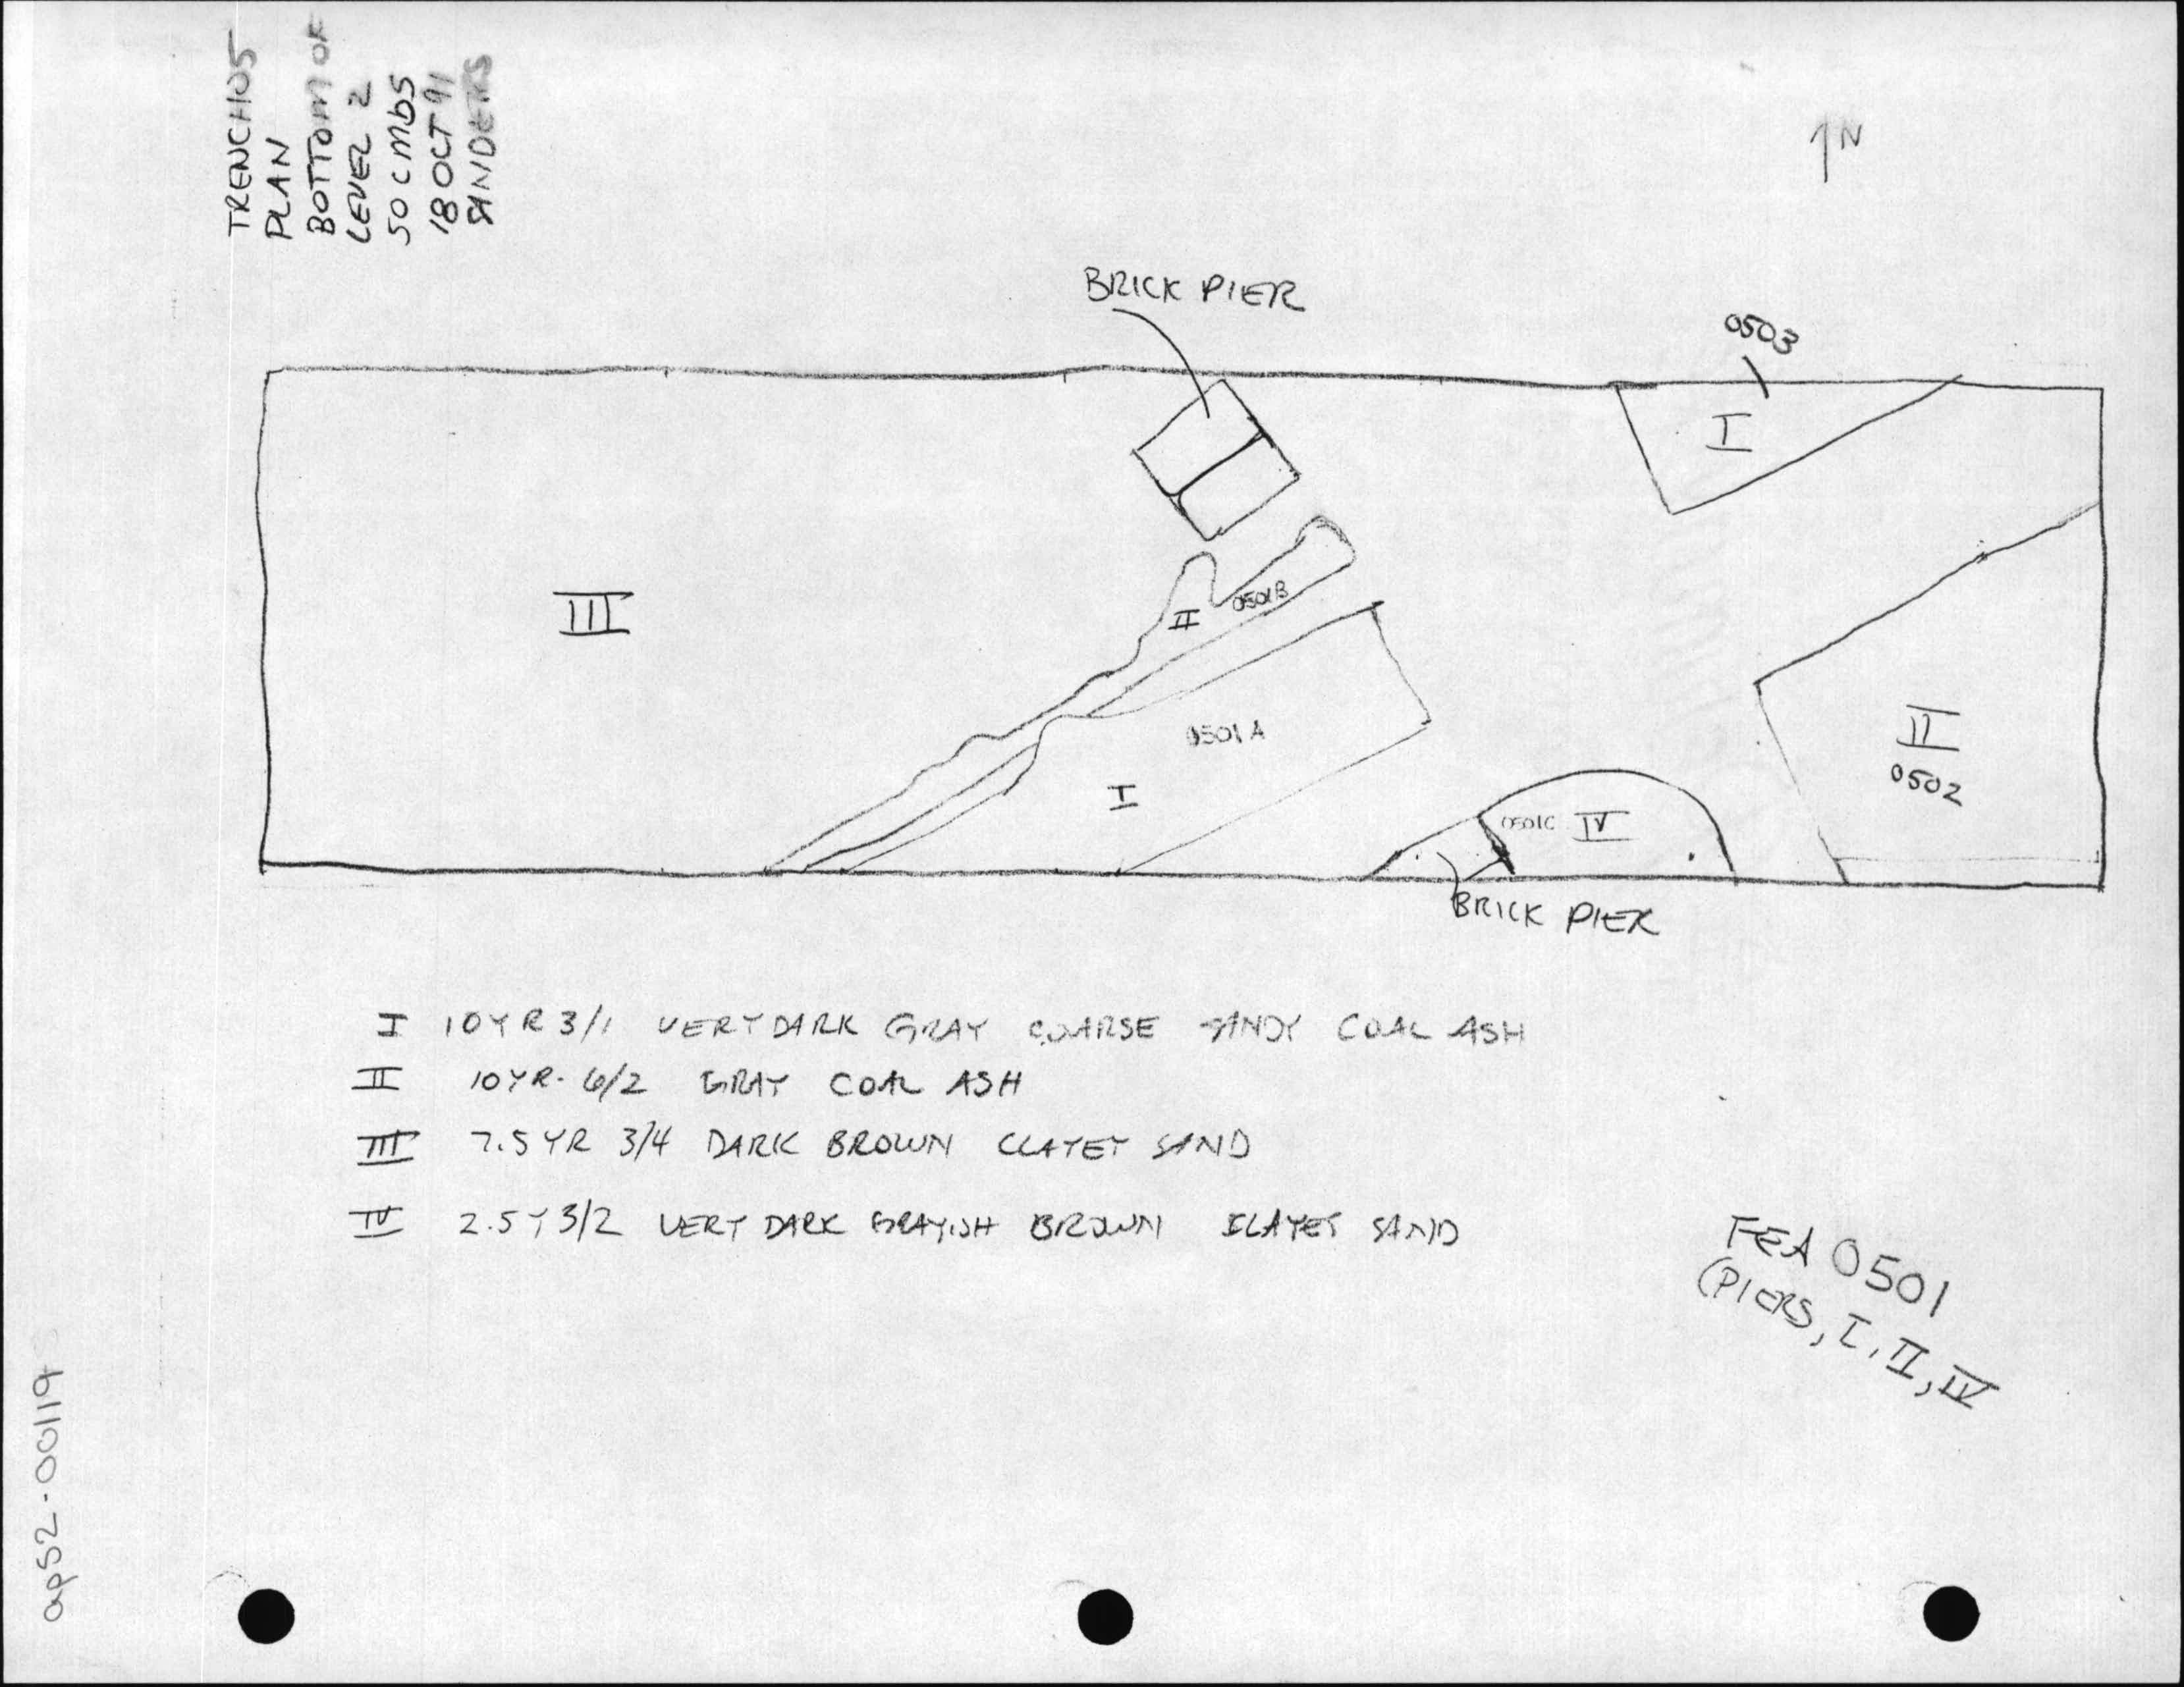 TRENCH 05
PLAN
BOTTOM OF
LEVEL 2
50 CMbS
18 OCT 91
SANDERS
N
BRICK PIER
0503
I
III
II
0501B
0501A
I
II
0502
0501C IV
BRICK PIER
I 10YR 3/1 VERY DARK GRAY COARSE SANDY COAL ASH
II 10YR 6/2 GRAY COAL ASH
III 7.5YR 3/4 DARK BROWN CLAYEY SAND
IV 2.5Y 3/2 VERY DARK GRAYISH BROWN CLAYEY SAND
FEA 0501
(PIERS, I, II, IV
ap52-00119